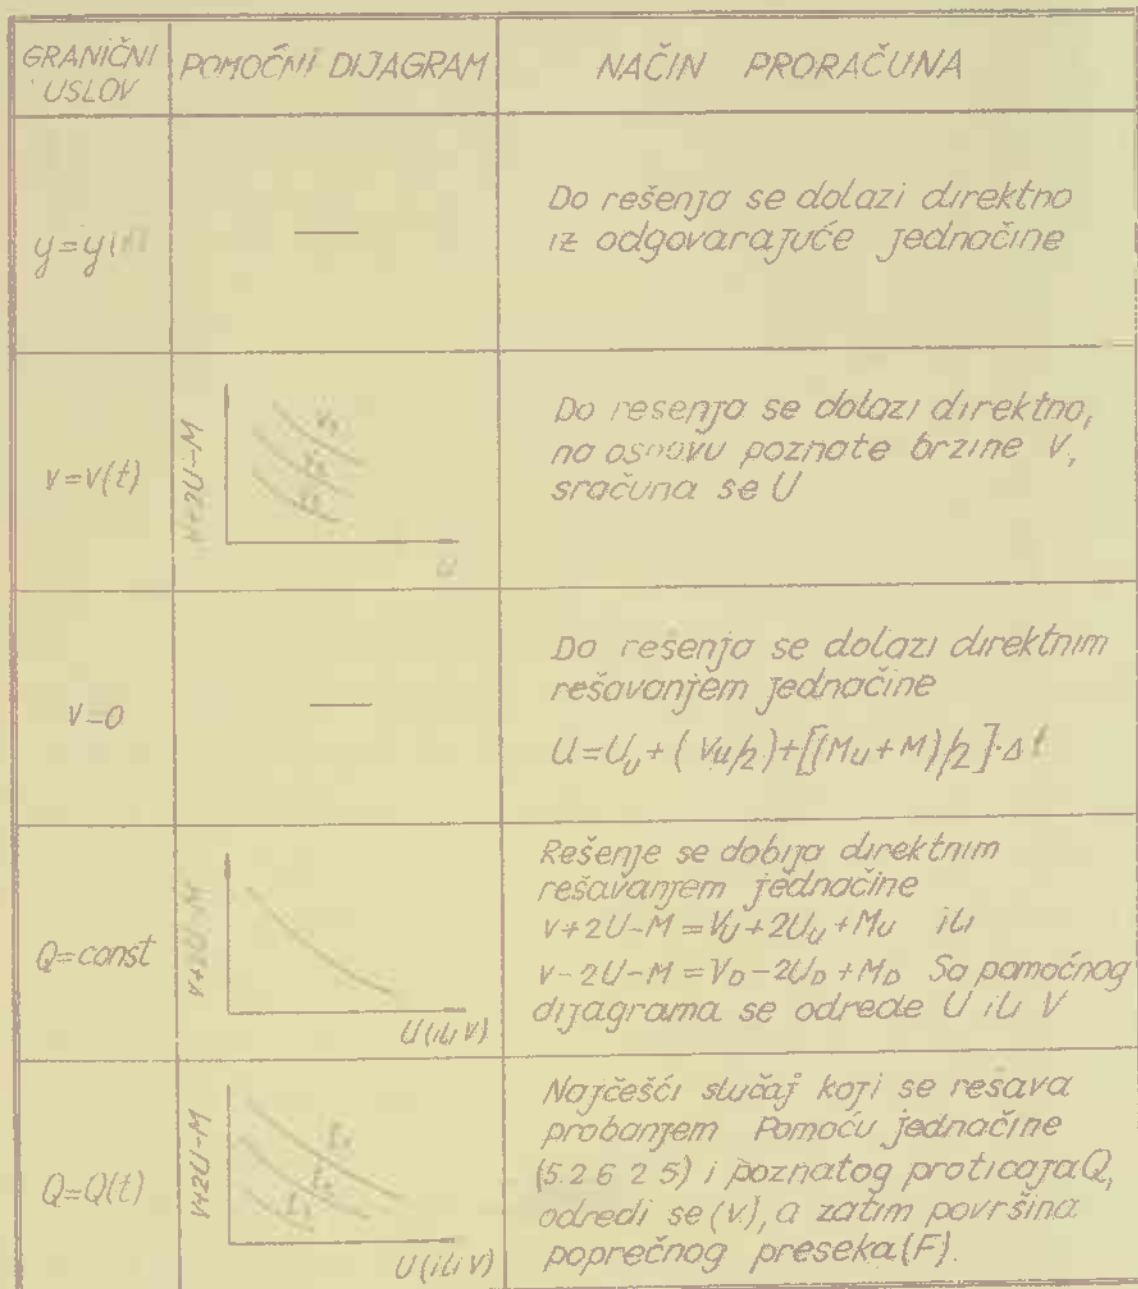 GRANIČNI
USLOV
POMOĆNI DIJAGRAM
NAČIN PRORAČUNA
y=y(
Do rešenja se dolazi direktno
iz odgovarajuće jednačine
v=v(t)
V+2U-M
Do resenja se dolazi direktno,
na osnovu poznate brzine V,
sračuna se U
V-0
Do rešenja se dolazi direktnim
rešavanjem jednačine
U=U_U+(V_U/2)+[(M_U+M)/2]·Δt
Q=const
V+2U-M
U(ili V)
Rešenje se dobija direktnim
rešavanjem jednačine
V+2U-M=V_U+2U_U+M_U ili
V-2U-M=V_D-2U_D+M_D Sa pomoćnog
dijagrama se odrede U ili V
Q=Q(t)
V+2U-M
U(ili V)
Najčešći slučaj koji se resava
probanjem Pomoću jednačine
(5.2 6 2 5) i poznatog proticaja Q,
odredi se (V), a zatim površina
poprečnog preseka (F).